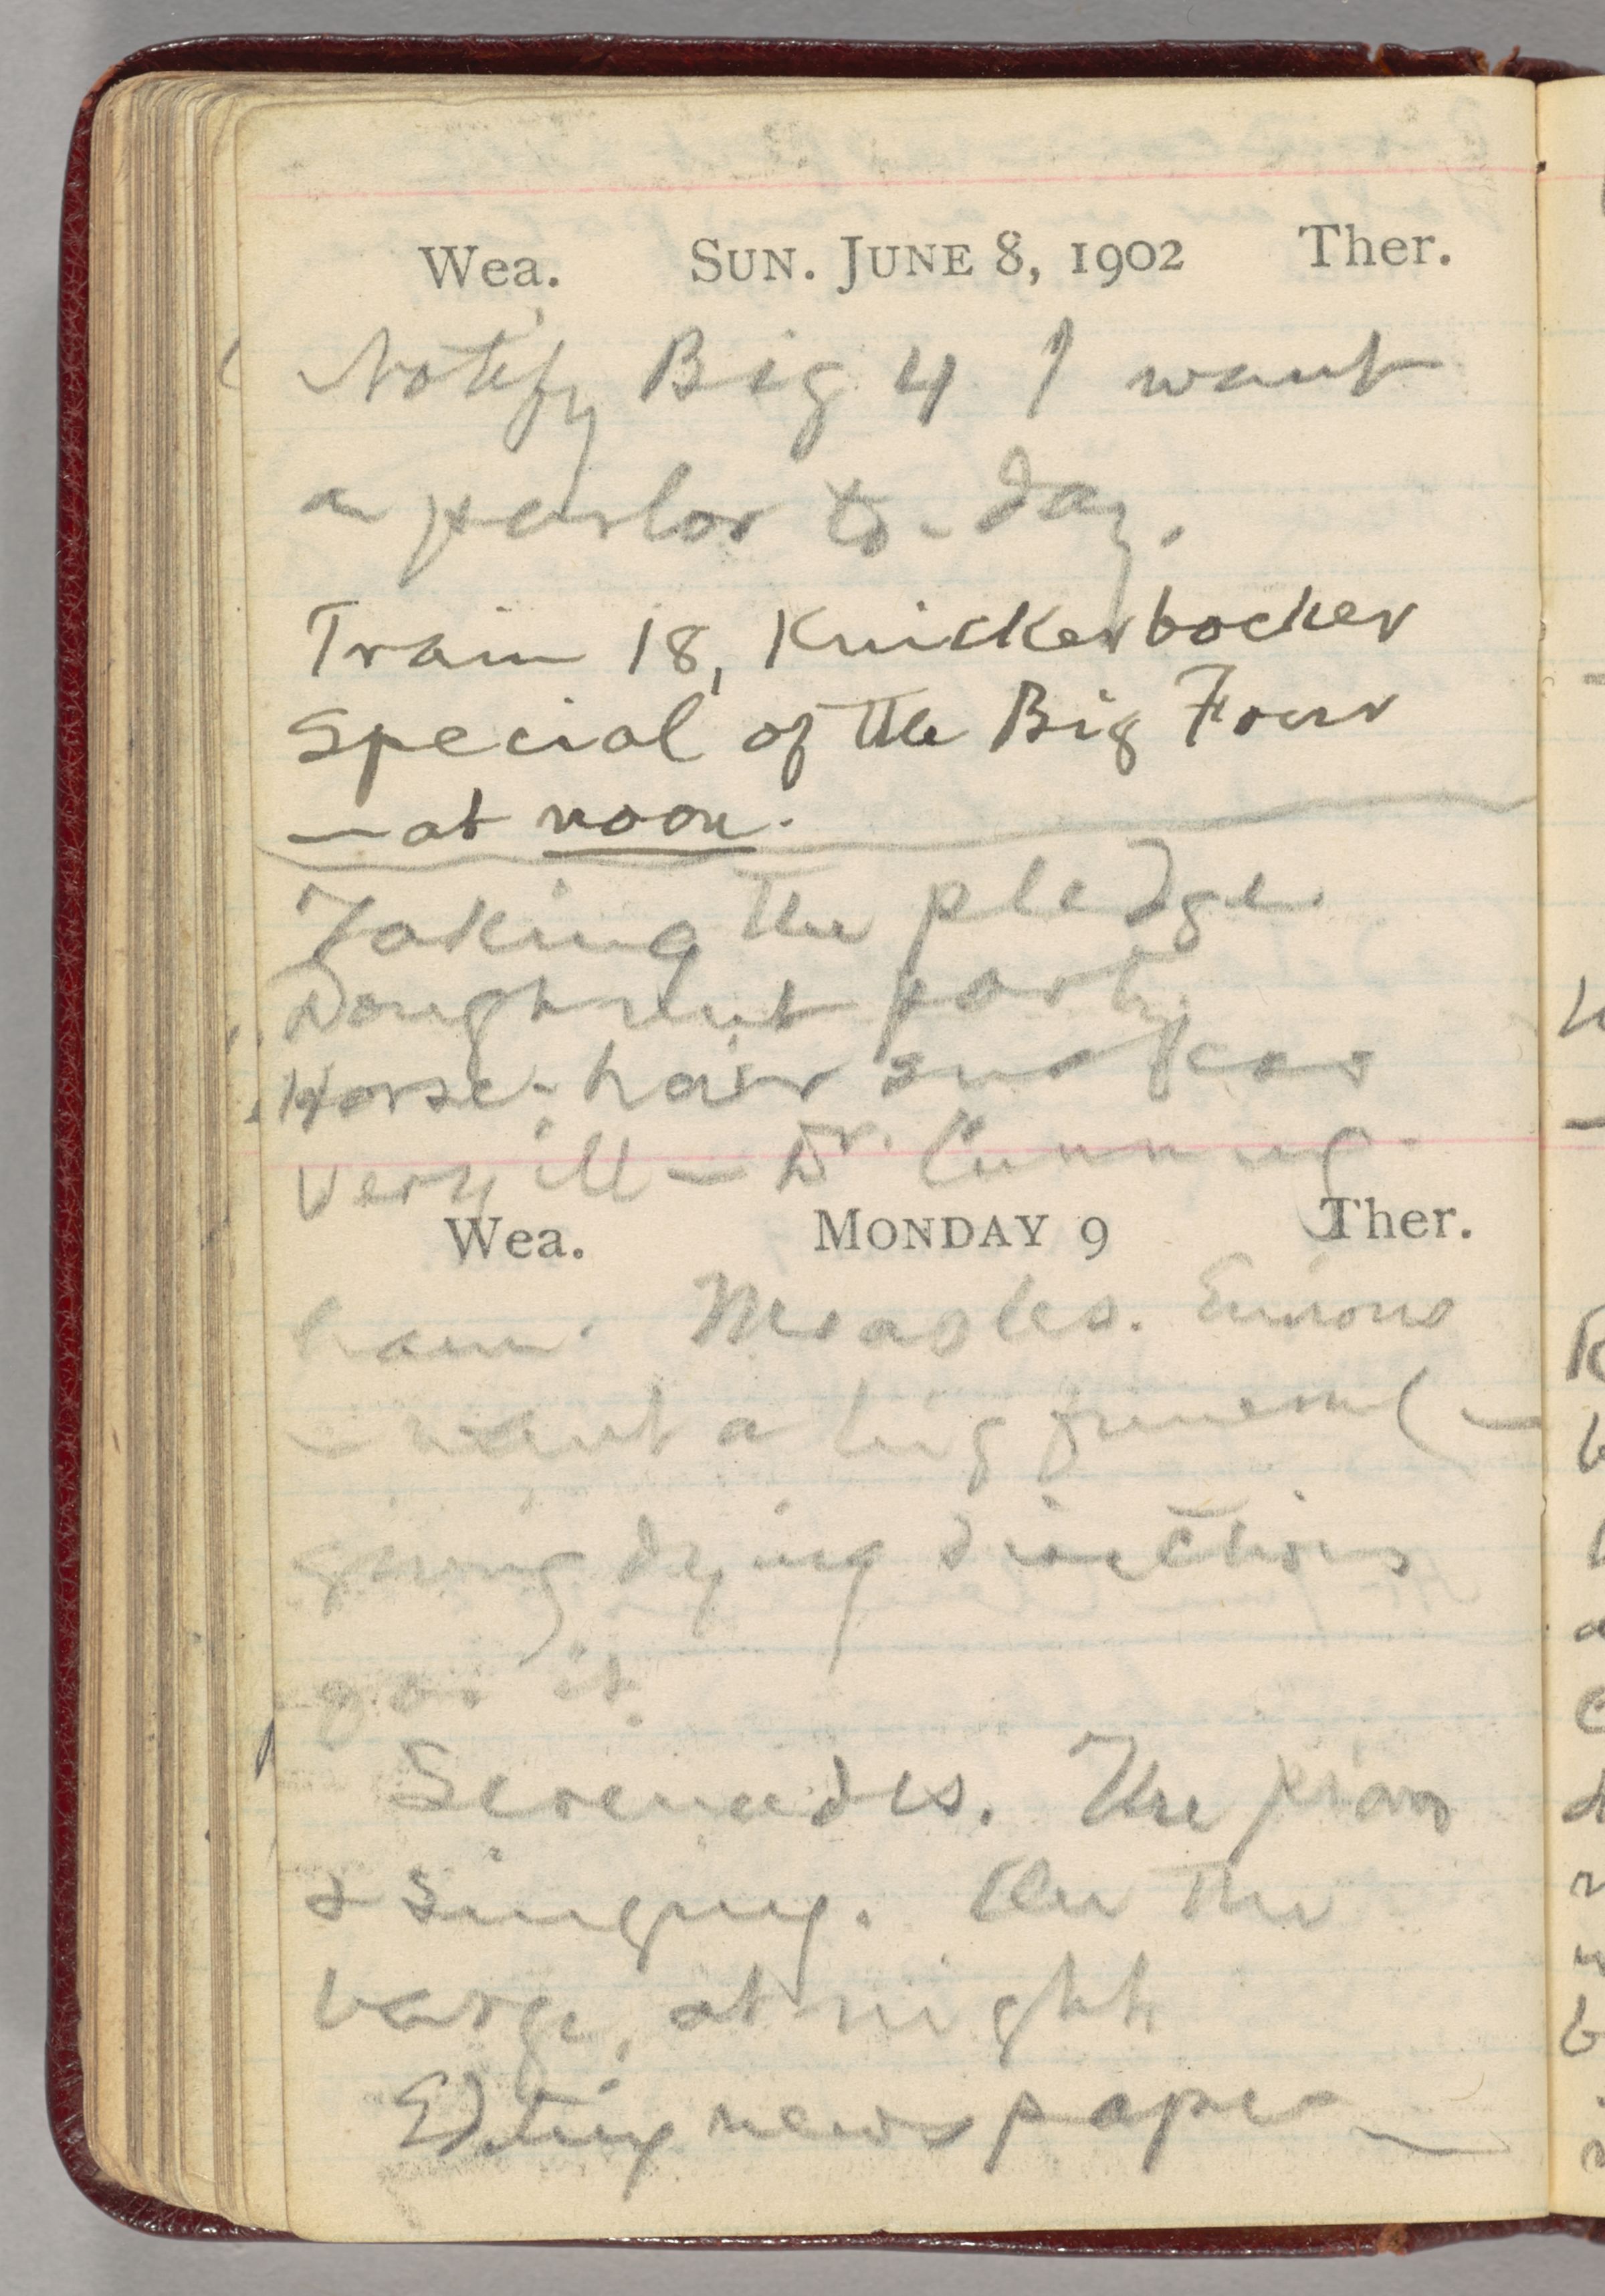 Wea. SUN. JUNE 8, 1902 Ther.
Notify Big 4 I want
a parlor to-day.
Train 18, Knickerbocker
Special of the Big Four
—at noon.
Taking the pledge.
Doughnut party.
Horse-hair snakes
Very ill — Dr. Cunning
Wea. MONDAY 9 Ther.
ham. Measles. Envious
— want a big funeral —
giving dying directions
for it.
Serenades. The piano
& singing. On the
barge, at night
Editing newspaper —